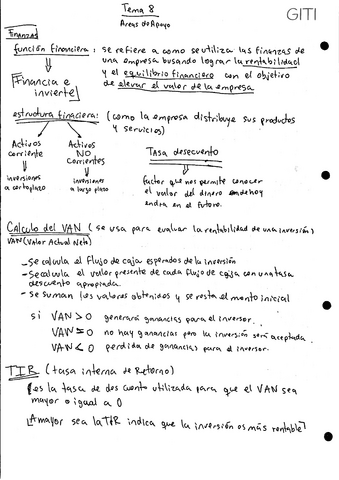 Tema 8
GITI
Areas de Apoyo
Finanzas
función financiera : se refiere a como se utiliza las finanzas de
una empresa busando lograr la rentabilidad
y el equilibrio financiero con el objetivo
de elevar el valor de la empresa
[Financia e
invierte]
estructura finaciera: (como la empresa distribuye sus productos
y servicios)
Activos
corriente
Activos
NO
corrientes
TASA desecuento
inversiones
a corto plazo
inversiones
a largo plazo
factor que nos permite conocer
el valor del dinero de hoy
en el futuro.
Calculo del VAN (se usa para evaluar la rentabilidad de una inversión)
VAN (Valor Actual Neto)
- Se calcula el Flujo de caja esperados de la inversión
- Se calcula el valor presente de cada flujo de caja con una tasa
descuento apropiada.
- Se suman los valores obtenidos y se resta el monto inicial
si VAN > 0 generará ganancias para el inversor.
VAN = 0 no hay ganancias pero la inversión será aceptada.
VAN < 0 perdida de ganancias para el inversor.
TIR (tasa interna de Retorno)
[es la tasa de descuento utilizada para que el VAN sea
mayor o igual a 0
[A mayor sea la TIR indica que la inversión es más rentable]